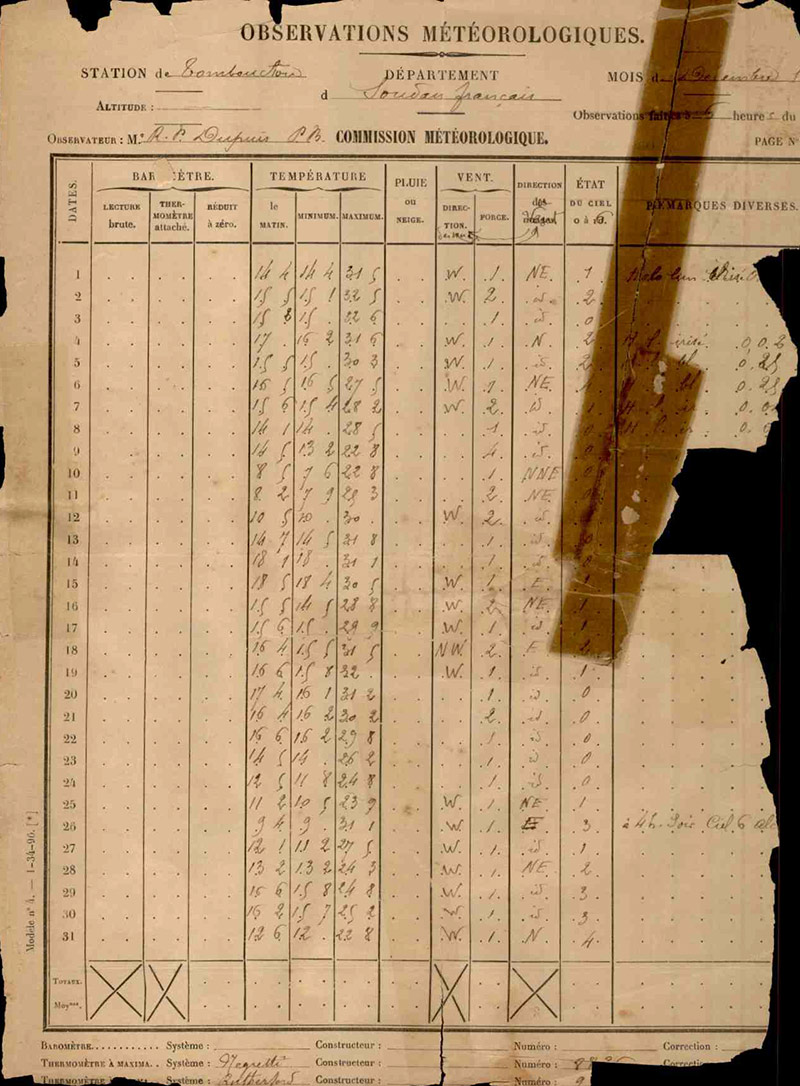 OBSERVATIONS MÉTÉOROLOGIQUES.
STATION de Tombouctou DÉPARTEMENT MOIS d Décembre 1
d Soudan français
ALTITUDE : Observations faites à 6 heures du
OBSERVATEUR : M. R. P. Dupuis P.B. COMMISSION MÉTÉOROLOGIQUE. PAGE N
DATES. BAROMÈTRE. TEMPÉRATURE PLUIE ou NEIGE. VENT. DIRECTION des ÉTAT DU CIEL 0 à 10. REMARQUES DIVERSES.
LECTURE brute. THERMOMÈTRE attaché. RÉDUIT à zéro. le MATIN. MINIMUM. MAXIMUM. DIRECTION. FORCE.
1 14 4 14 4 31 5 W. 1 NE. 1
2 15 5 15 1 32 5 W. 2 id. 2
3 15 8 15 . 32 6 1 id. 0
4 17 . 16 2 31 6 W. 1 N. 2
5 15 5 15 . 30 3 W. 1 id. 2 0.25
6 16 5 16 5 27 5 W. 1 NE. 1 0.25
7 15 6 15 4 28 2 W. 2 id. 1
8 14 1 14 . 28 5 1 id.
9 14 5 13 2 22 8 4 id.
10 8 5 7 6 22 8 1 NNE
11 8 2 7 9 29 3 2 NE.
12 10 5 10 . 30 . W. 2 id.
13 14 7 14 5 31 8 1 id.
14 18 1 18 . 31 1 1 id.
15 18 5 18 4 30 5 W. 1 E. 1
16 15 5 14 5 28 8 W. 2 NE. 1
17 15 6 15 . 29 9 W. 1 id. 1
18 16 4 15 5 31 5 NW. 2 E 2
19 16 6 15 8 32 . W. 1 id. 1
20 17 4 16 1 31 2 1 id. 0
21 16 4 16 2 30 2 2 id. 0
22 16 6 16 2 29 8 1 id. 0
23 14 5 14 . 26 2 1 id. 0
24 12 5 11 8 24 8 1 id. 0
25 11 2 10 5 23 9 W. 1 NE. 1
26 9 4 9 . 31 1 W. 1 E 3 à 4h. Soir Ciel 6
27 12 1 11 2 27 5 W. 1 id. 1
28 13 2 13 2 24 3 W. 1 NE. 2
29 16 6 15 8 24 8 W. 1 id. 3
30 16 2 15 7 25 2 W. 1 id. 3
31 12 6 12 . 22 8 W. 1 N. 4
TOTAUX.
MOYnes.
Modèle n° 4. — 1-34-96. [*]
BAROMÈTRE. Système : Constructeur : Numéro : Correction :
THERMOMÈTRE À MAXIMA. Système : Negretti Constructeur : Numéro : Correction
THERMOMÈTRE À MINIMA. Système : Rutherford Constructeur : Numéro :